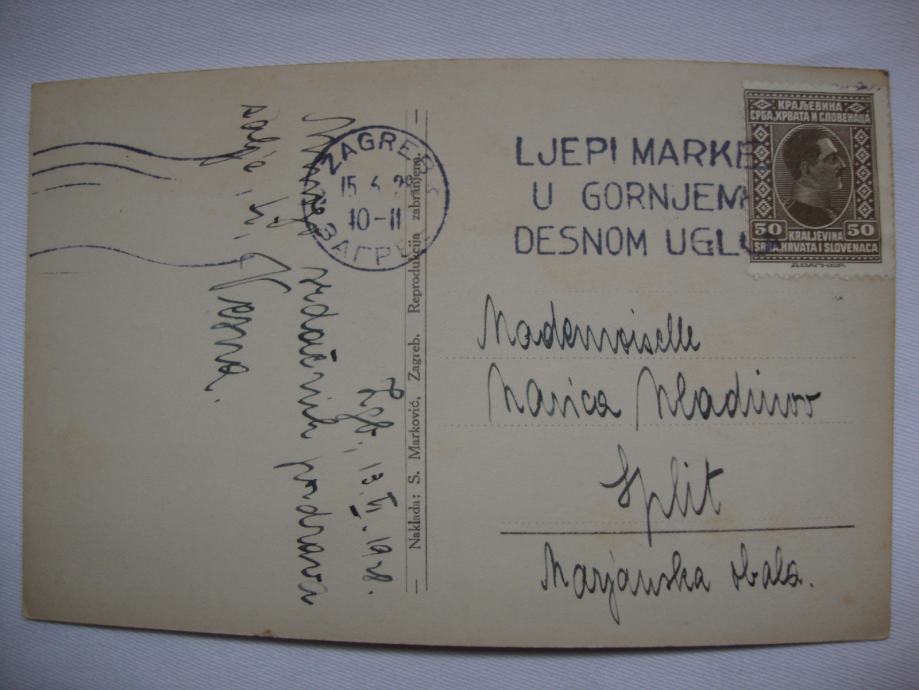 Zgb, 13. VI. 1928.
Mnogo srdačnih pozdrava
šalje ti
Vesna.
— Naklada: S. Marković, Zagreb. Reprodukcija zabranjena. —
ZAGREB
15 6 28
10-11
ЗАГРЕБ
LJEPI MARKE
U GORNJEM
DESNOM UGLU
КРАЉЕВИНА
СРБА, ХРВАТА И СЛОВЕНАЦА
50 50
KRALJEVINA
SRBA, HRVATA I SLOVENACA
Mademoiselle
Marica Mladinov
Split
Marjanska obala.